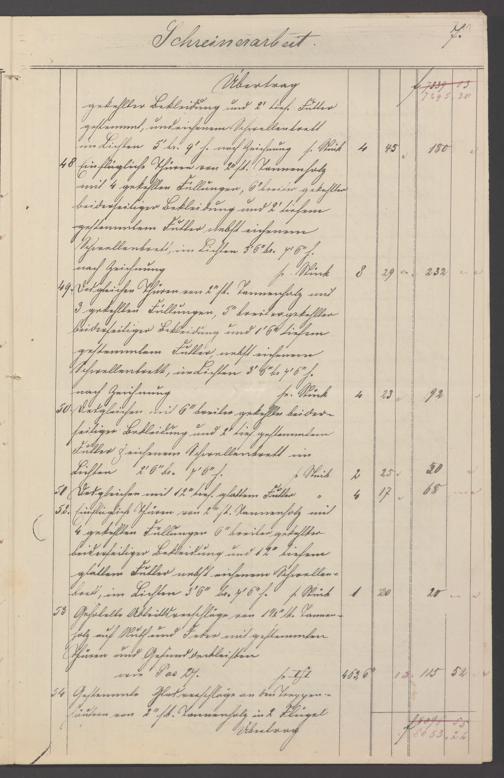 Schreinerarbeit. 7.
Übertrag f 7295.30
gekehlter Bekleidung und 2' tief. Futter
gestemmt, und eichenem Schwellenbrett
im Lichten 5' br. 9' h. nach Zeichnung p. Stück 4 45 180
48 Einflüglich Thüren von 2" st. Tannenholz
mit 4 gekehlten Füllungen, 6" breiter gekehlter
beiderseitiger Bekleidung und 2' tiefem
gestemmtem Futter nebst eichenem
Schwellenbrett, im Lichten 3'6" br. 7'6" h.
nach Zeichnung p. Stück 8 29 232
49. Desgleichen Thüren von 2" st. Tannenholz mit
3 gekehlten Füllungen, 5" breiter gekehlter
beiderseitiger Bekleidung und 1'6" tiefem
gestemmtem Futter, nebst eichenem
Schwellenbrett, im Lichten 3'6" br. 7'6" h.
nach Zeichnung p. Stück 4 23 92
50. Desgleichen mit 6" breiter gekehlter beider-
seitiger Bekleidung und 2' tief gestemmtem
Futter, eichenem Schwellenbrett im
Lichten 2'6" br. 7'6" h. p. Stück 2 25
51 Desgleichen mit 12" tief. glattem Futter " 4 17 68
52. Einflüglich Thüren von 2" st. Tannenholz mit
4 gekehlten Füllungen 6" breiter gekehlter
beiderseitiger Bekleidung und tiefem
glattem Futter nebst eichenem Schwellen-
brett, im Lichten 3'6" br. 7'6" h. p. Stück 1 20 20
53 Gehobelte Abtrittverschläge von st. Tannen-
holz auf Nuth und Feder mit gestemmten
Thüren und Gesims Deckleisten
wie Pos 27. 115 52
54 Gestemmte Glasverschläge an den Treppen-
häusern von 2" st. Tannenholz in 2 Flügel
Übertrag f